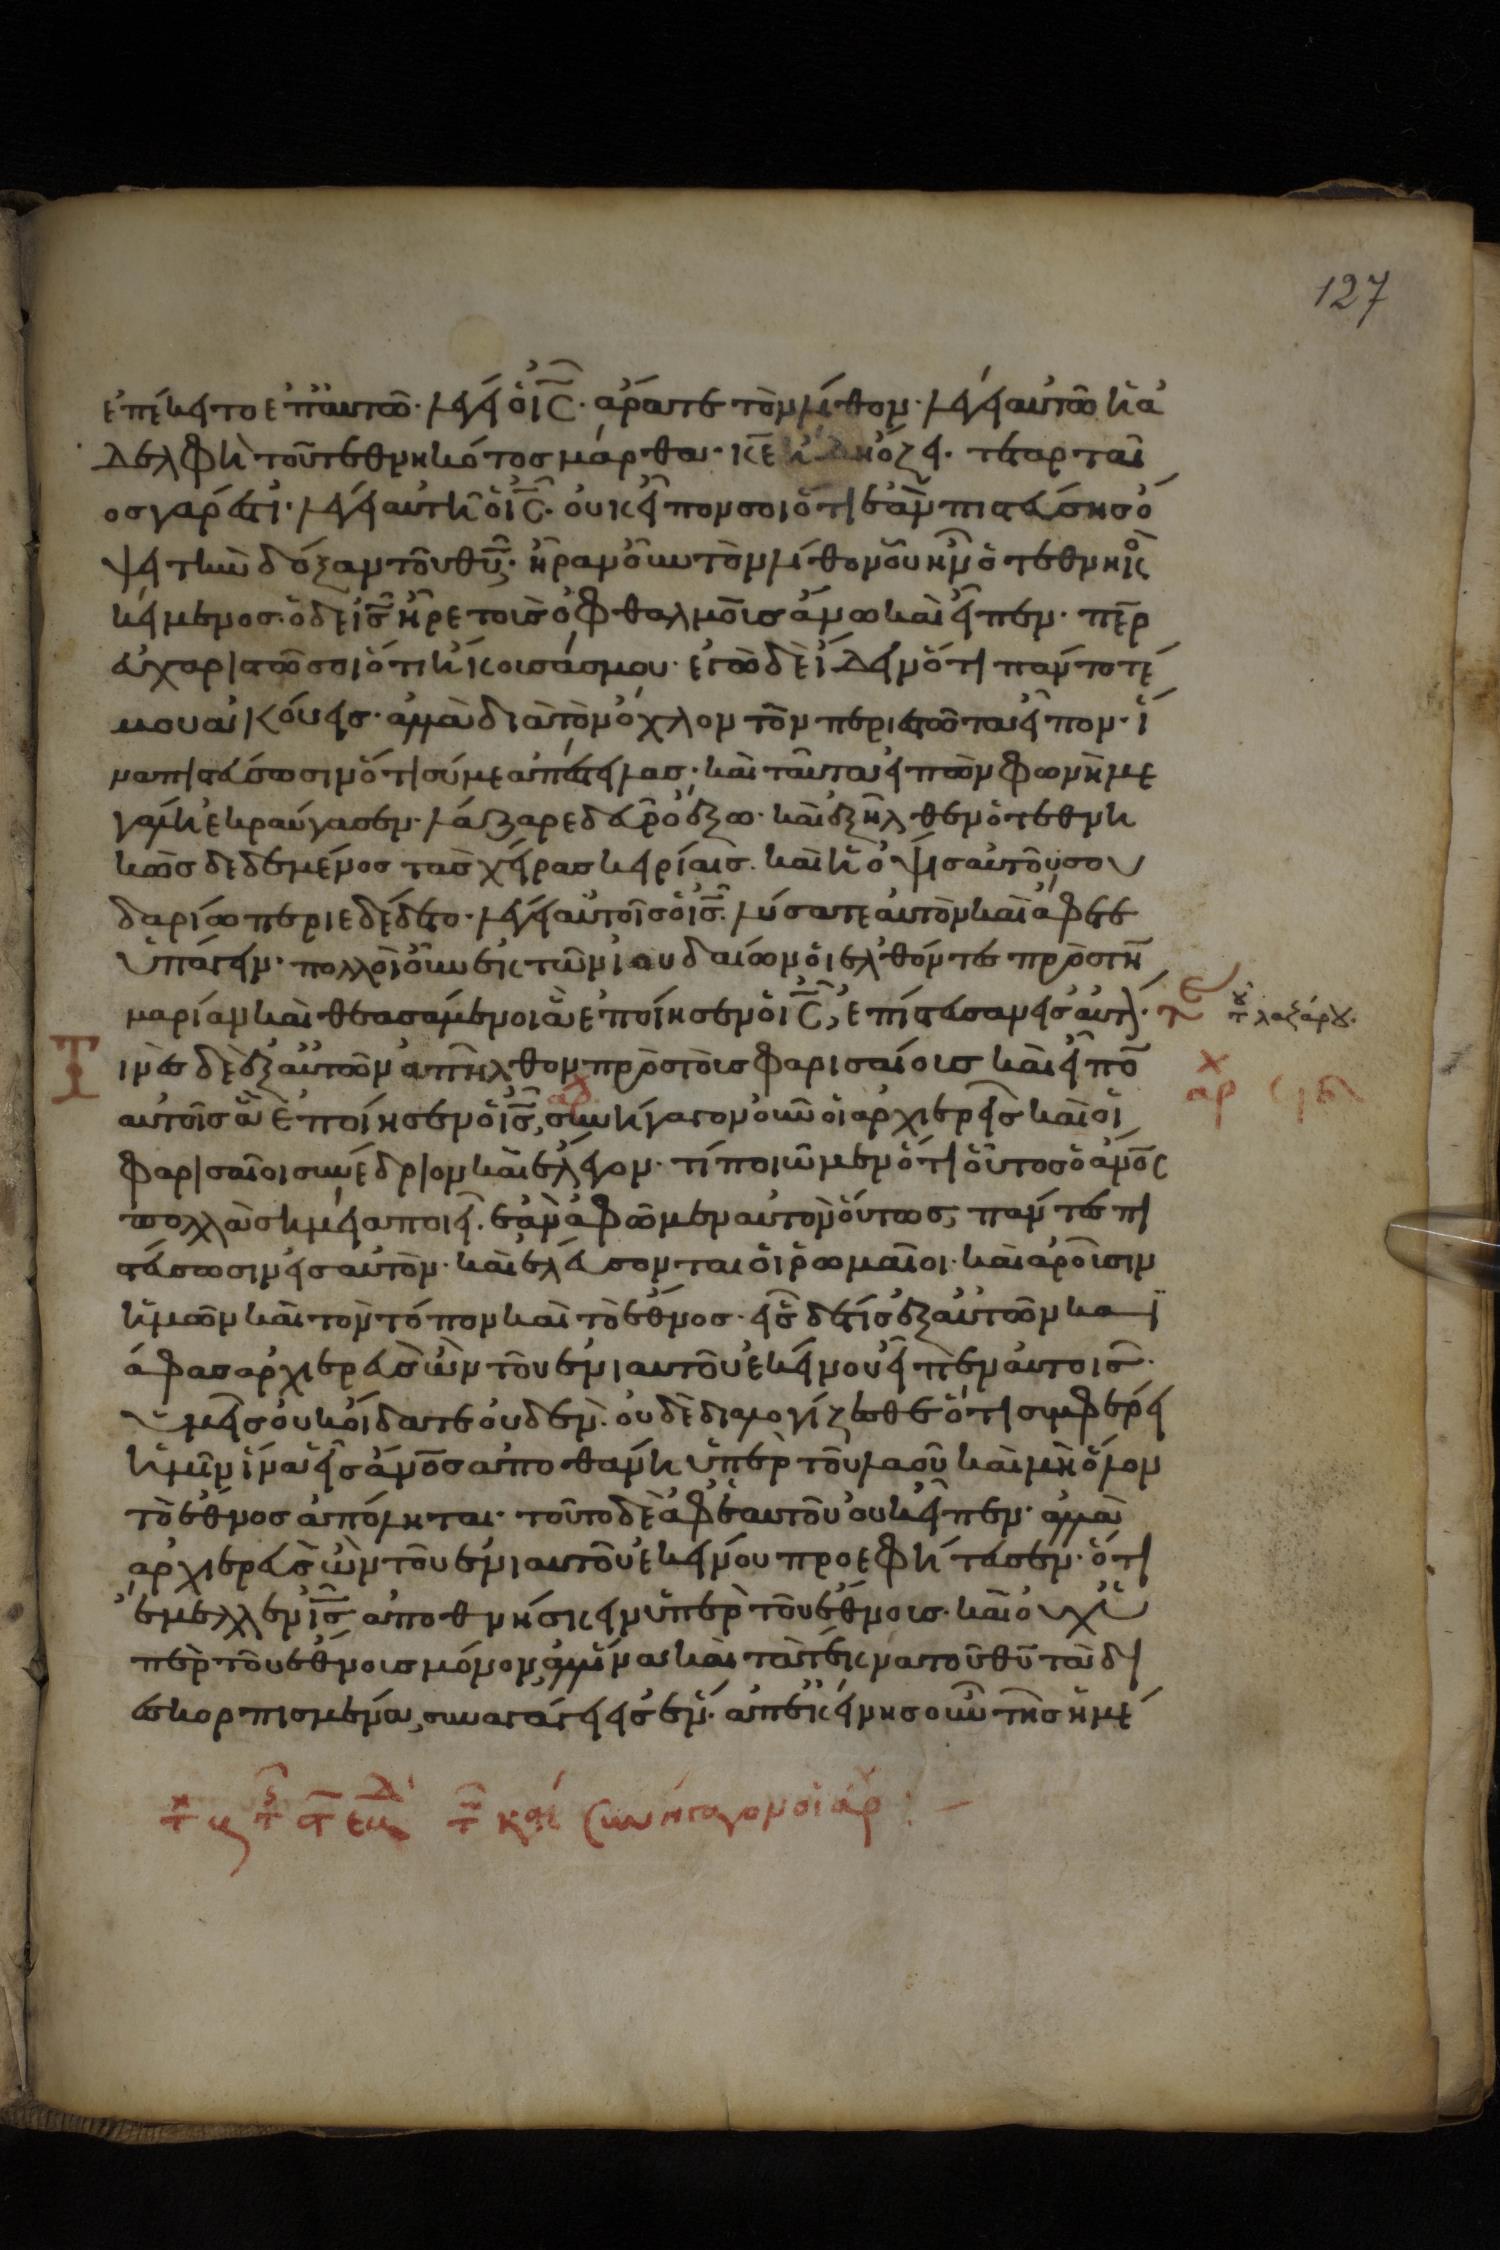 127
ἐπέκειτο ἐπ' αὐτῶ· λέγει ὁ ις· ἄρατε τὸν λίθον· λέγει αὐτῶ ἡ ἀ
δελφὴ τοῦ τεθνηκότος μάρθα· κε ἤδη ὄζει· τεταρταῖ
ος γάρ ἐστι· λέγει αὐτῆ ὁ ις· οὐκ εἶπόν σοι ὅτι ἐὰν πιστεύσης ὄ
ψει τὴν δόξαν τοῦ θυ· ἦραν οὖν τὸν λίθον οὗ ἦν ὁ τεθνηκὼς
κείμενος· ὁ δὲ ις ἦρε τοὺς ὀφθαλμοὺς ἄνω καὶ εἶπεν· περ
εὐχαριστῶ σοι ὅτι ἤκουσάς μου· ἐγὼ δὲ ἤδειν ὅτι πάντοτέ
μου ἀκούεις· ἀλλὰ διὰ τὸν ὄχλον τὸν περιεστῶτα εἶπον· ἵ
να πιστεύσωσιν ὅτι σύ με ἀπέστειλας· καὶ ταῦτα εἰπὼν φωνῆ με
γάλη ἐκραύγασεν· λάζαρε δεῦρο ἔξω· καὶ ἐξῆλθεν ὁ τεθνη
κὼς δεδεμένος τὰς χεῖρας κειρίαις· καὶ ἡ ὄψις αὐτοῦ σου
δαρίω περιεδέδετο· λέγει αὐτοῖς ὁ ις· λύσατε αὐτὸν καὶ ἄφετε
ὑπάγειν· πολλοὶ οὖν ἐκ τῶν ἰουδαίων οἱ ἐλθόντες πρὸς τὴν
μαρίαν καὶ θεασάμενοι ἃ ἐποίησεν ὁ ις, ἐπίστευσαν εἰς αὐτόν·
τ λαζάρου·
Τ
ινὲς δὲ ἐξ αὐτῶν ἀπῆλθον πρὸς τοὺς φαρισαίους καὶ εἶπον
αρ
αὐτοῖς ἃ ἐποίησεν ὁ ις, συνήγαγον οὖν οἱ ἀρχιερεῖς καὶ οἱ
αρ
φαρισαῖοι συνέδριον καὶ ἔλεγον· τί ποιῶμεν ὅτι οὗτος ὁ ανος
πολλὰ σημεῖα ποιεῖ· ἐὰν ἀφῶμεν αὐτὸν οὕτως, πάντες πι
στεύσωσιν εἰς αὐτὸν· καὶ ἐλεύσονται οἱ ῥωμαῖοι· καὶ ἀροῦσιν
ἡμῶν καὶ τὸν τόπον καὶ τὸ ἔθνος· εἷς δέ τις ἐξ αὐτῶν καϊ
άφας ἀρχιερεὺς ὢν τοῦ ἐνιαυτοῦ ἐκείνου εἶπεν αὐτοῖς·
ὑμεῖς οὐκ οἴδατε οὐδέν· οὐδὲ διαλογίζεσθε ὅτι συμφέρει
ἡμῖν ἵνα εἷς ανος ἀποθάνη ὑπὲρ τοῦ λαοῦ καὶ μὴ ὅλον
τὸ ἔθνος ἀπόληται· τοῦτο δὲ ἀφ' ἑαυτοῦ οὐκ εἶπεν· ἀλλὰ
ἀρχιερεὺς ὢν τοῦ ἐνιαυτοῦ ἐκείνου προεφήτευσεν· ὅτι
ἔμελλεν ις ἀποθνήσκειν ὑπὲρ τοῦ ἔθνους· καὶ οὐχ ὑ
πὲρ τοῦ ἔθνους μόνον ἀλλ' ἵνα καὶ τὰ τέκνα τοῦ θυ τὰ δι
εσκορπισμένα, συναγάγη εἰς ἕν· ἀπ' ἐκείνης οὖν τῆς ἡμέ
τ κ(αι)ρ συνήγαγον οἱ ἀρ : —